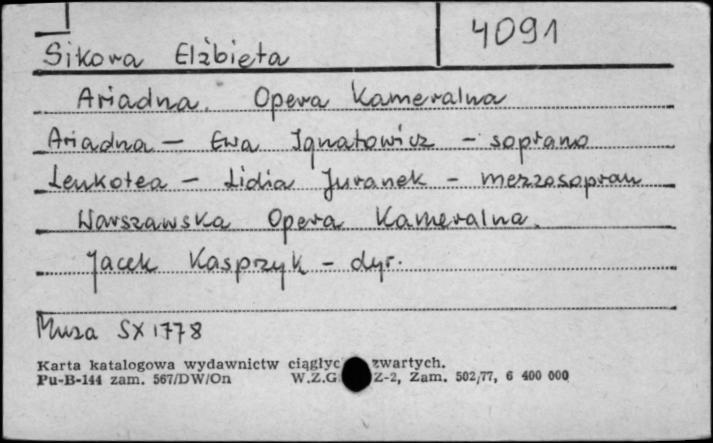 4091
Sikora Elżbieta
Ariadna. Opera Kameralna
Ariadna — Ewa Ignatowicz — soprano
Leukotea — Lidia Juranek — mezzosopran
Warszawska Opera Kameralna.
Jacek Kasprzyk — dyr.
Muza SX 1778
Karta katalogowa wydawnictw ciągłyc zwartych.
Pu-B-144 zam. 567/DW/On W.Z.G Z-2, Zam. 502/77, 6 400 000